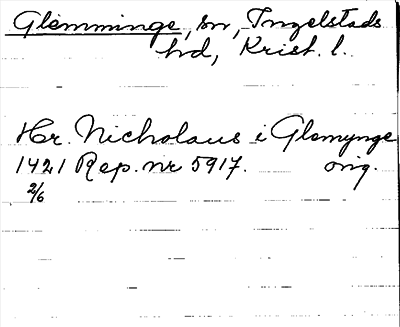 Glemminge, sn, Ingelstads
hd, Krist. l.
Hr. Nicholaus i Glemynge
1421 Rep. nr 5917. orig.
2/6